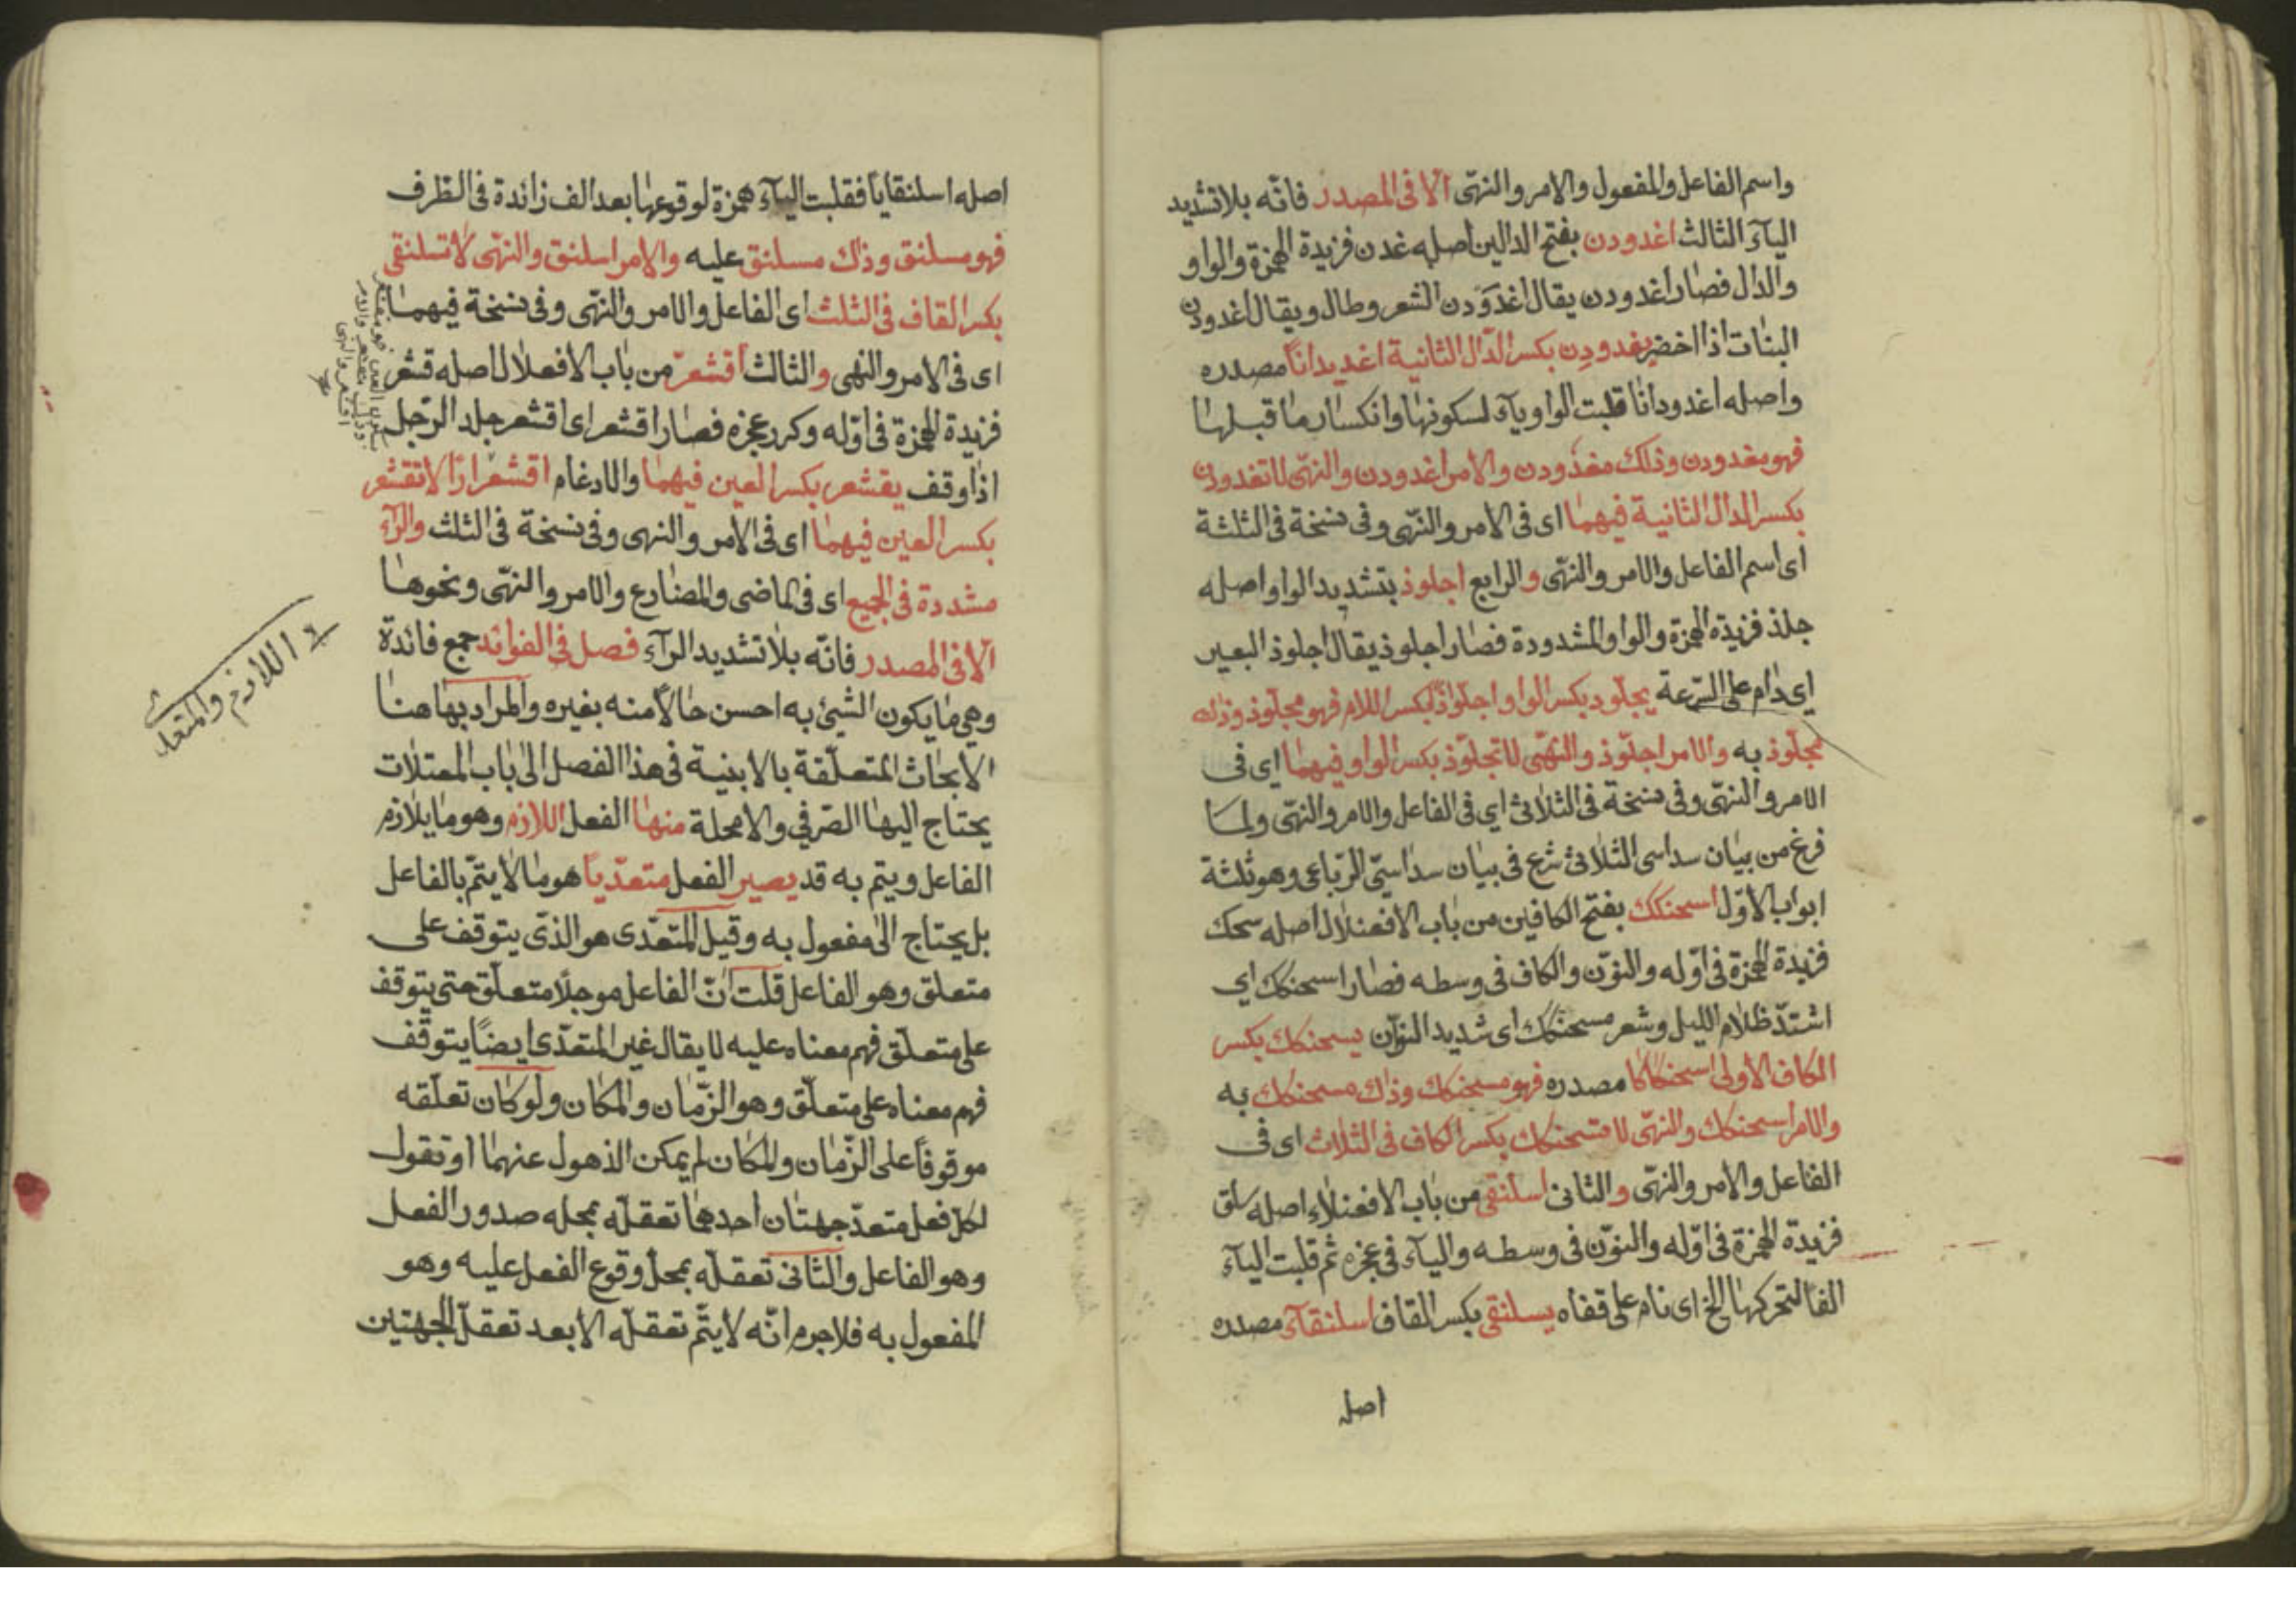 واسم الفاعل والمفعول والامر والنهّى الّا فى المصدر فانّه بلا تشديد
اليآء الثالث اغدودن بفتح الدالين اصله غدن فزيدة الهمزة والواو
والدال فصار اغدودن يقال اغدودن الشعر وطال ويقال اغدودن
البنات اذا اخضر يغدودن بكسر الدّال الثانية اغديدانًا مصدره
واصله اغدودانا قلبت الواو يآء لسكونها وانكسار ما قبلها
فهو مغدودن وذلك مغدودن والامر اغدودن والنهّى لا تغدودن
بكسر الدال الثانية فيهما اى فى الامر والنهّى وفى نسخة فى الثلثة
اى اسم الفاعل والامر والنهّى والرابع اجلوذ بتشديد الواو اصله
جلذ فزيدة الهمزة والواو المشدودة فصار اجلوذ يقال اجلوذ البعير
اي دام على السّرعة يجلّود بكسر الواو اجلوّاذًا بكسر اللام فهو مجلّوذ وذلك
مجلّوذ به والامر اجلّوذ والنهّى لا تجلّوذ بكسر الواو فيهما اى فى
الامر والنهّى وفى نسخة فى الثلاثى اي فى الفاعل والامر والنهّى ولما
فرغ من بيان سداسى الثلاثى شرع فى بيان سداسىّ الرّباعى وهو ثلثة
ابواب الاوّل اسحنكك بفتح الكافين من باب الافعنلال اصله سحك
فزيدة الهمزة فى اوّله والنوّن والكاف فى وسطه فصار اسحنكك اي
اشتدّ ظلام الليل وشعر مسحنكك اى شديد النوّن يسحنكك بكسر
الكاف الاولى اسحنكاكا مصدره فهو مسحنكك وذاك مسحنكك به
والامر اسحنكك والنهّى لا تسحنكك بكسر الكاف فى الثلاث اى فى
الفاعل والامر والنهّى والثانى اسلنقى من باب الافعنلاء اصله سلق
فزيدة الهمزة فى اوّله والنوّن فى وسطه واليآء فى عجزه ثم قلبت اليآء
الفا لتحركها الخ اى نام على قفاه يسلنقى بكسر القاف اسلنقآء مصدره
اصله
اصله اسلنقايا فقلبت اليآء همزة لوقوعها بعد الف زائدة فى الطرف
فهو مسلنق وذاك مسلنق عليه والامر اسلنق والنهّى لا تسلنقى
بكسر القاف فى الثلث اى الفاعل والامر والنهّى وفى نسخة فيهما
اى فى الامر والنهى والثالث اقشعرّ من باب الافعلال اصله قشعر
فزيدة الهمزة فى اوّله وكرر عجزه فصار اقشعر اى اقشعر جلد الرّجل
اذا وقف يقشعر بكسر العين فيهما والادغام اقشعرارًا لا تقشعر
بكسر العين فيهما اى فى الامر والنهى وفى نسخة فى الثلث والرّآء
مشددة فى الجميع اى فى الماضى والمضارع والامر والنهّى ونحوها
الّا فى المصدر فانّه بلا تشديد الرآء فصل فى الفوائد جمع فائدة
وهي ما يكون الشئ به احسن حالًا منه بغيره والمراد بها هنا
الابحاث المتعلّقة بالابنية فى هذا الفصل الى باب المعتلات
يحتاج اليها الصّرفي والامحلة منها الفعل اللازم وهو ما يلازم
الفاعل ويتم به قد يصير الفعل متعدّيا هو ما لا يتمّ بالفاعل
بل يحتاج الى مفعول به وقيل المتعدّى هو الذّى يتوقف على
متعلق وهو الفاعل قلت انّ الفاعل موجلًا متعلّق حتى يتوقف
على متعلّق فهم معناه عليه لا يقال غير المتعدّى ايضًا يتوقّف
فهم معناه على متعلّق وهو الزّمان والمكان ولو كان تعلّقه
موقوفًا على الزّمان والمكان لم يمكن الذهول عنهما او تقول
لكل فعل متعدّ جهتان احدهما تعقلّه بمحله صدور الفعل
وهو الفاعل والثانى تعقلّه بمحلّ وقوع الفعل عليه وهو
المفعول به فلا جرم انّه لا يتّم تعقلّه الا بعد تعقلّ الجهتين
اللازم والمتعدى